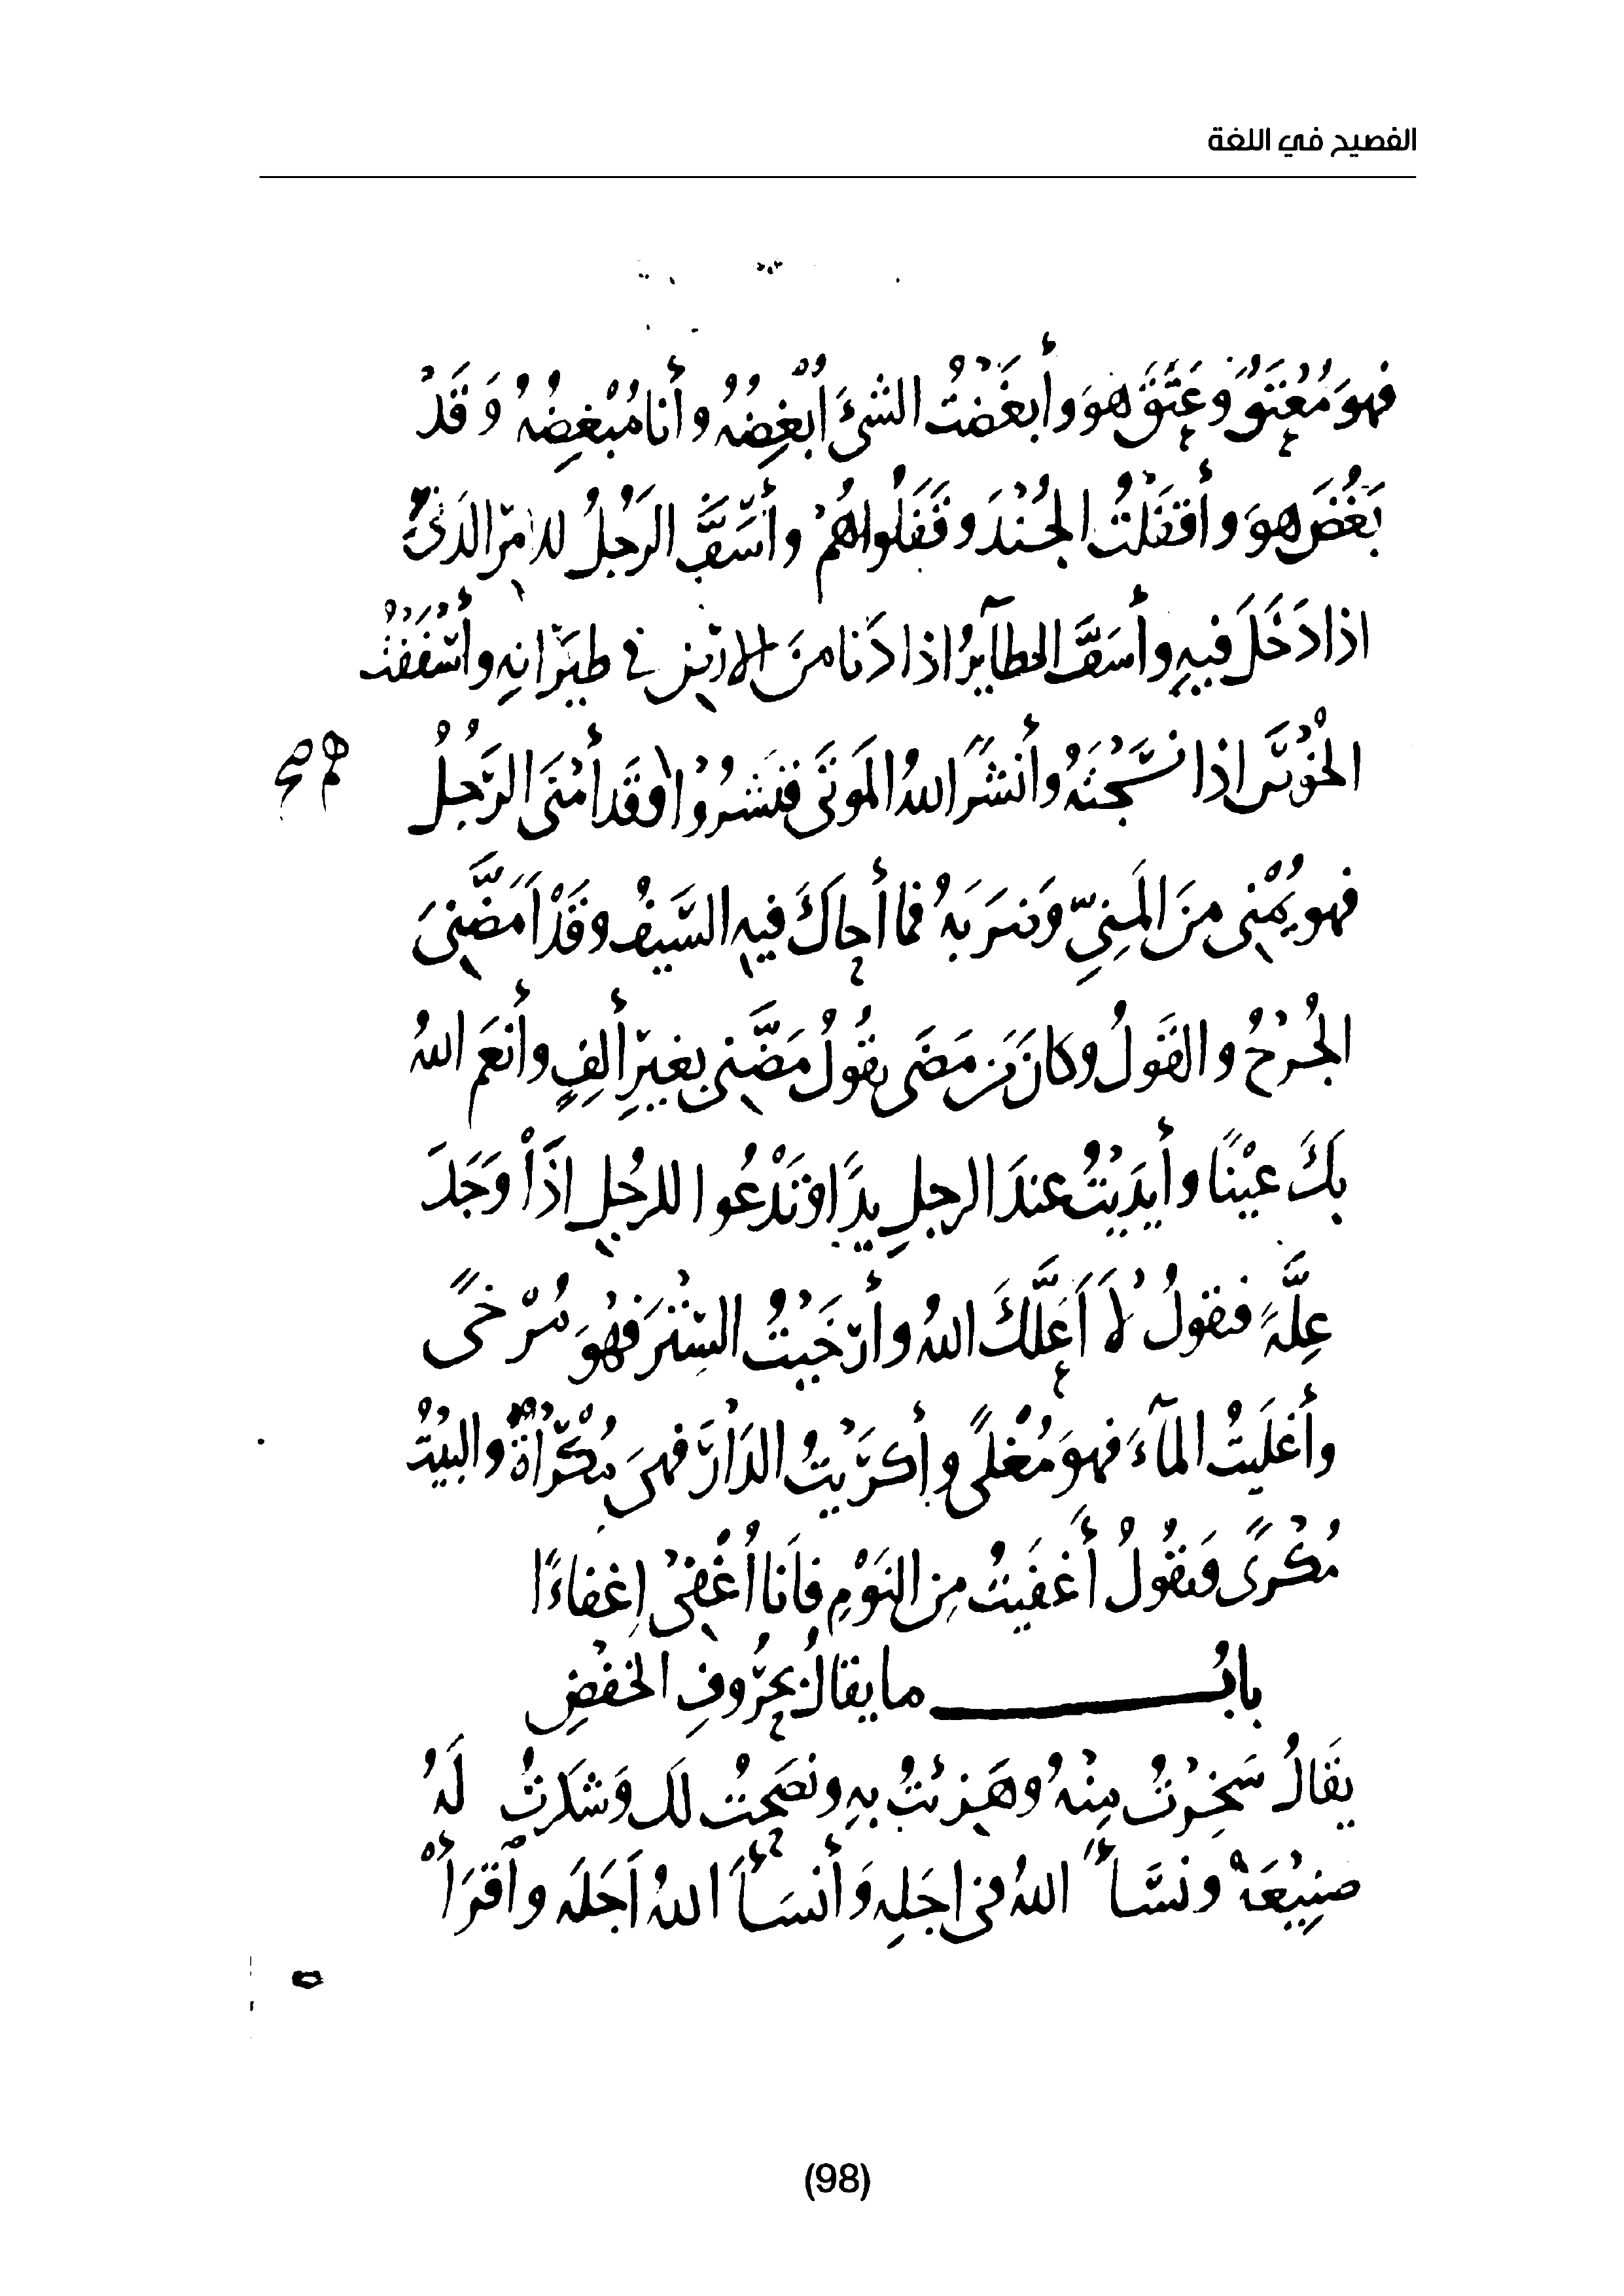 الفصيح في اللغة
فهوَ مُعْتَقٌ وعَتَقَ هوَ وأبغَضْتُ الشيءَ أُبْغِضُهُ وأنا مُبْغِضُهُ وَقَدْ
بَغُضَ هوَ وأقفَلْتُ الجُنْدَ وقَفَلُوا هُمْ وأسَفَّ الرَجُلُ للامْرِ الدَنيِّ
اذا دَخَلَ فيهِ وأسَفَّ الطآيرُ اذا دَنا منَ الارْضِ في طَيَرانِهِ وأسْفَفْتُ
الخُوْصَ اذا نسَجْتَهُ وأنشَرَ اللهُ المَوتَى فنَشَرُوْا وقَدْ أمْنَى الرَجُلُ
هم صح
فهو يُمْنِي منَ المَنِيِّ وَضَرَبَهُ فما أحاكَ فيهِ السَيفُ وقَدْ اَمَضَّنيَ
الجُرْحُ والقَولُ وكانَ مَن مَضَى يقُولُ مَضَّني بغيرِ ألِفٍ وأنعَمَ اللهُ
بكَ عيْنًا وأيدَيْتُ عندَ الرجلِ يدًا وتَدْعُوا للرجُلِ اذَا وَجَدَ
عِلَّةً فتقولُ لاَ اَعَلَّكَ اللهُ وأرْخَيْتُ السِتْرَ فهُوَ مُرْخًى
وأغلَيتُ المآءَ فهوَ مُغْلًى وأكرَيْتُ الدَارَ فهيَ مُكْرَاةٌ والبيْتُ
مُكْرًى وتقُولُ أَغفَيتُ مِن النَوْمِ فاَنا اُغْفِيْ إغفاءًا
بابُ ما يقالُ بحُرُوفِ الخفْضِ
يقَالُ سَخِرْتُ مِنْهُ وهَزِئتُ بهِ ونصَحْتُ لَك وَشكَرتُ لَهُ
صنِيْعَهُ ونسَأَ اللهُ في اجَلِهِ وَأنسَأَ اللهُ اَجَلَه واَقرَأْ
(98)